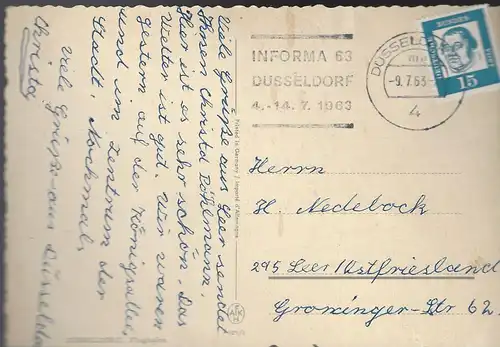 Viele Grüße aus Leer sendet
Ihnen Christa Pöhlmann.
Hier ist es sehr schön. Das
Wetter ist gut. Wir waren
gestern auf der Königsallee,
und im Zentrum der
Stadt. Nochmal,
viele Grüße aus Düsseldo
Christa
Printed in Germany / Imprimé d'Allemagne
INFORMA 63
DÜSSELDORF
4.-14. 7. 1963
DÜSSELDO
-9.7.63-
4
15
Herrn
H. Nedebock
295 Leer/Ostfriesland
Groninger-Str 62.